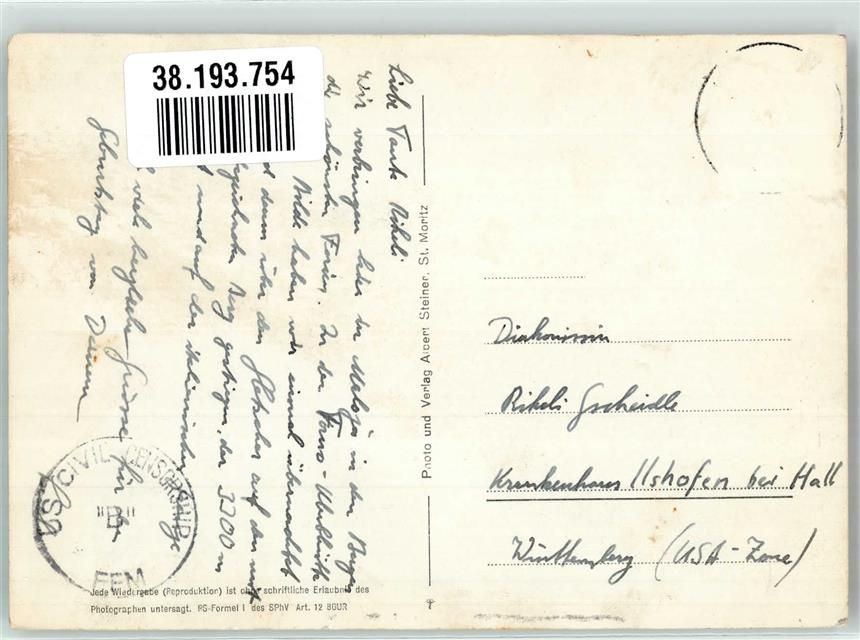 38.193.754
Liebe Tante Rikeli
Wir verbringen hier in Maloja in den Bergen
die schönsten Ferien. In der Forno-Clubhütte
Bilde haben wir einmal übernachtet
d dann über den Gletscher auf den auf
Berg gestiegen, der 3200 m
und auf der italienischen
viele herzliche Grüsse für
Geburtstag von Deinen
US CIVIL CENSORSHIP
"B"
EEM
Jede Wiedergabe (Reproduktion) ist ohne schriftliche Erlaubnis des
Photographen untersagt. RS-Formel I des SPhV Art. 12 BGUR
Photo und Verlag Albert Steiner, St. Moritz
Diakonissin
Rikeli Gscheidle
Krankenhaus Ilshofen bei Hall
Württemberg (USA-Zone)